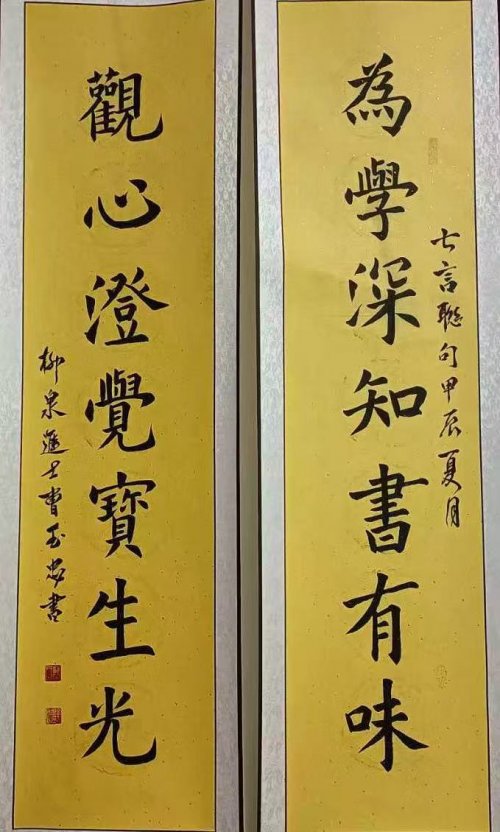 為學深知書有味
七言聯句甲辰夏月
觀心澄覺寶生光
柳泉進士曹玉忠書